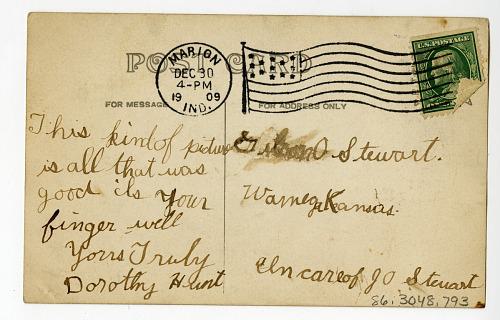 POST CARD
MARION
DEC 30
4-PM
1909
IND.
U.S. POSTAGE
FOR MESSAGE
FOR ADDRESS ONLY
This kind of picture
is all that was
good is your
finger well
Yours Truly
Dorothy Hunt
O Stewart.
Wamego Kansas.
In care of J O Stewart
86.3048.793